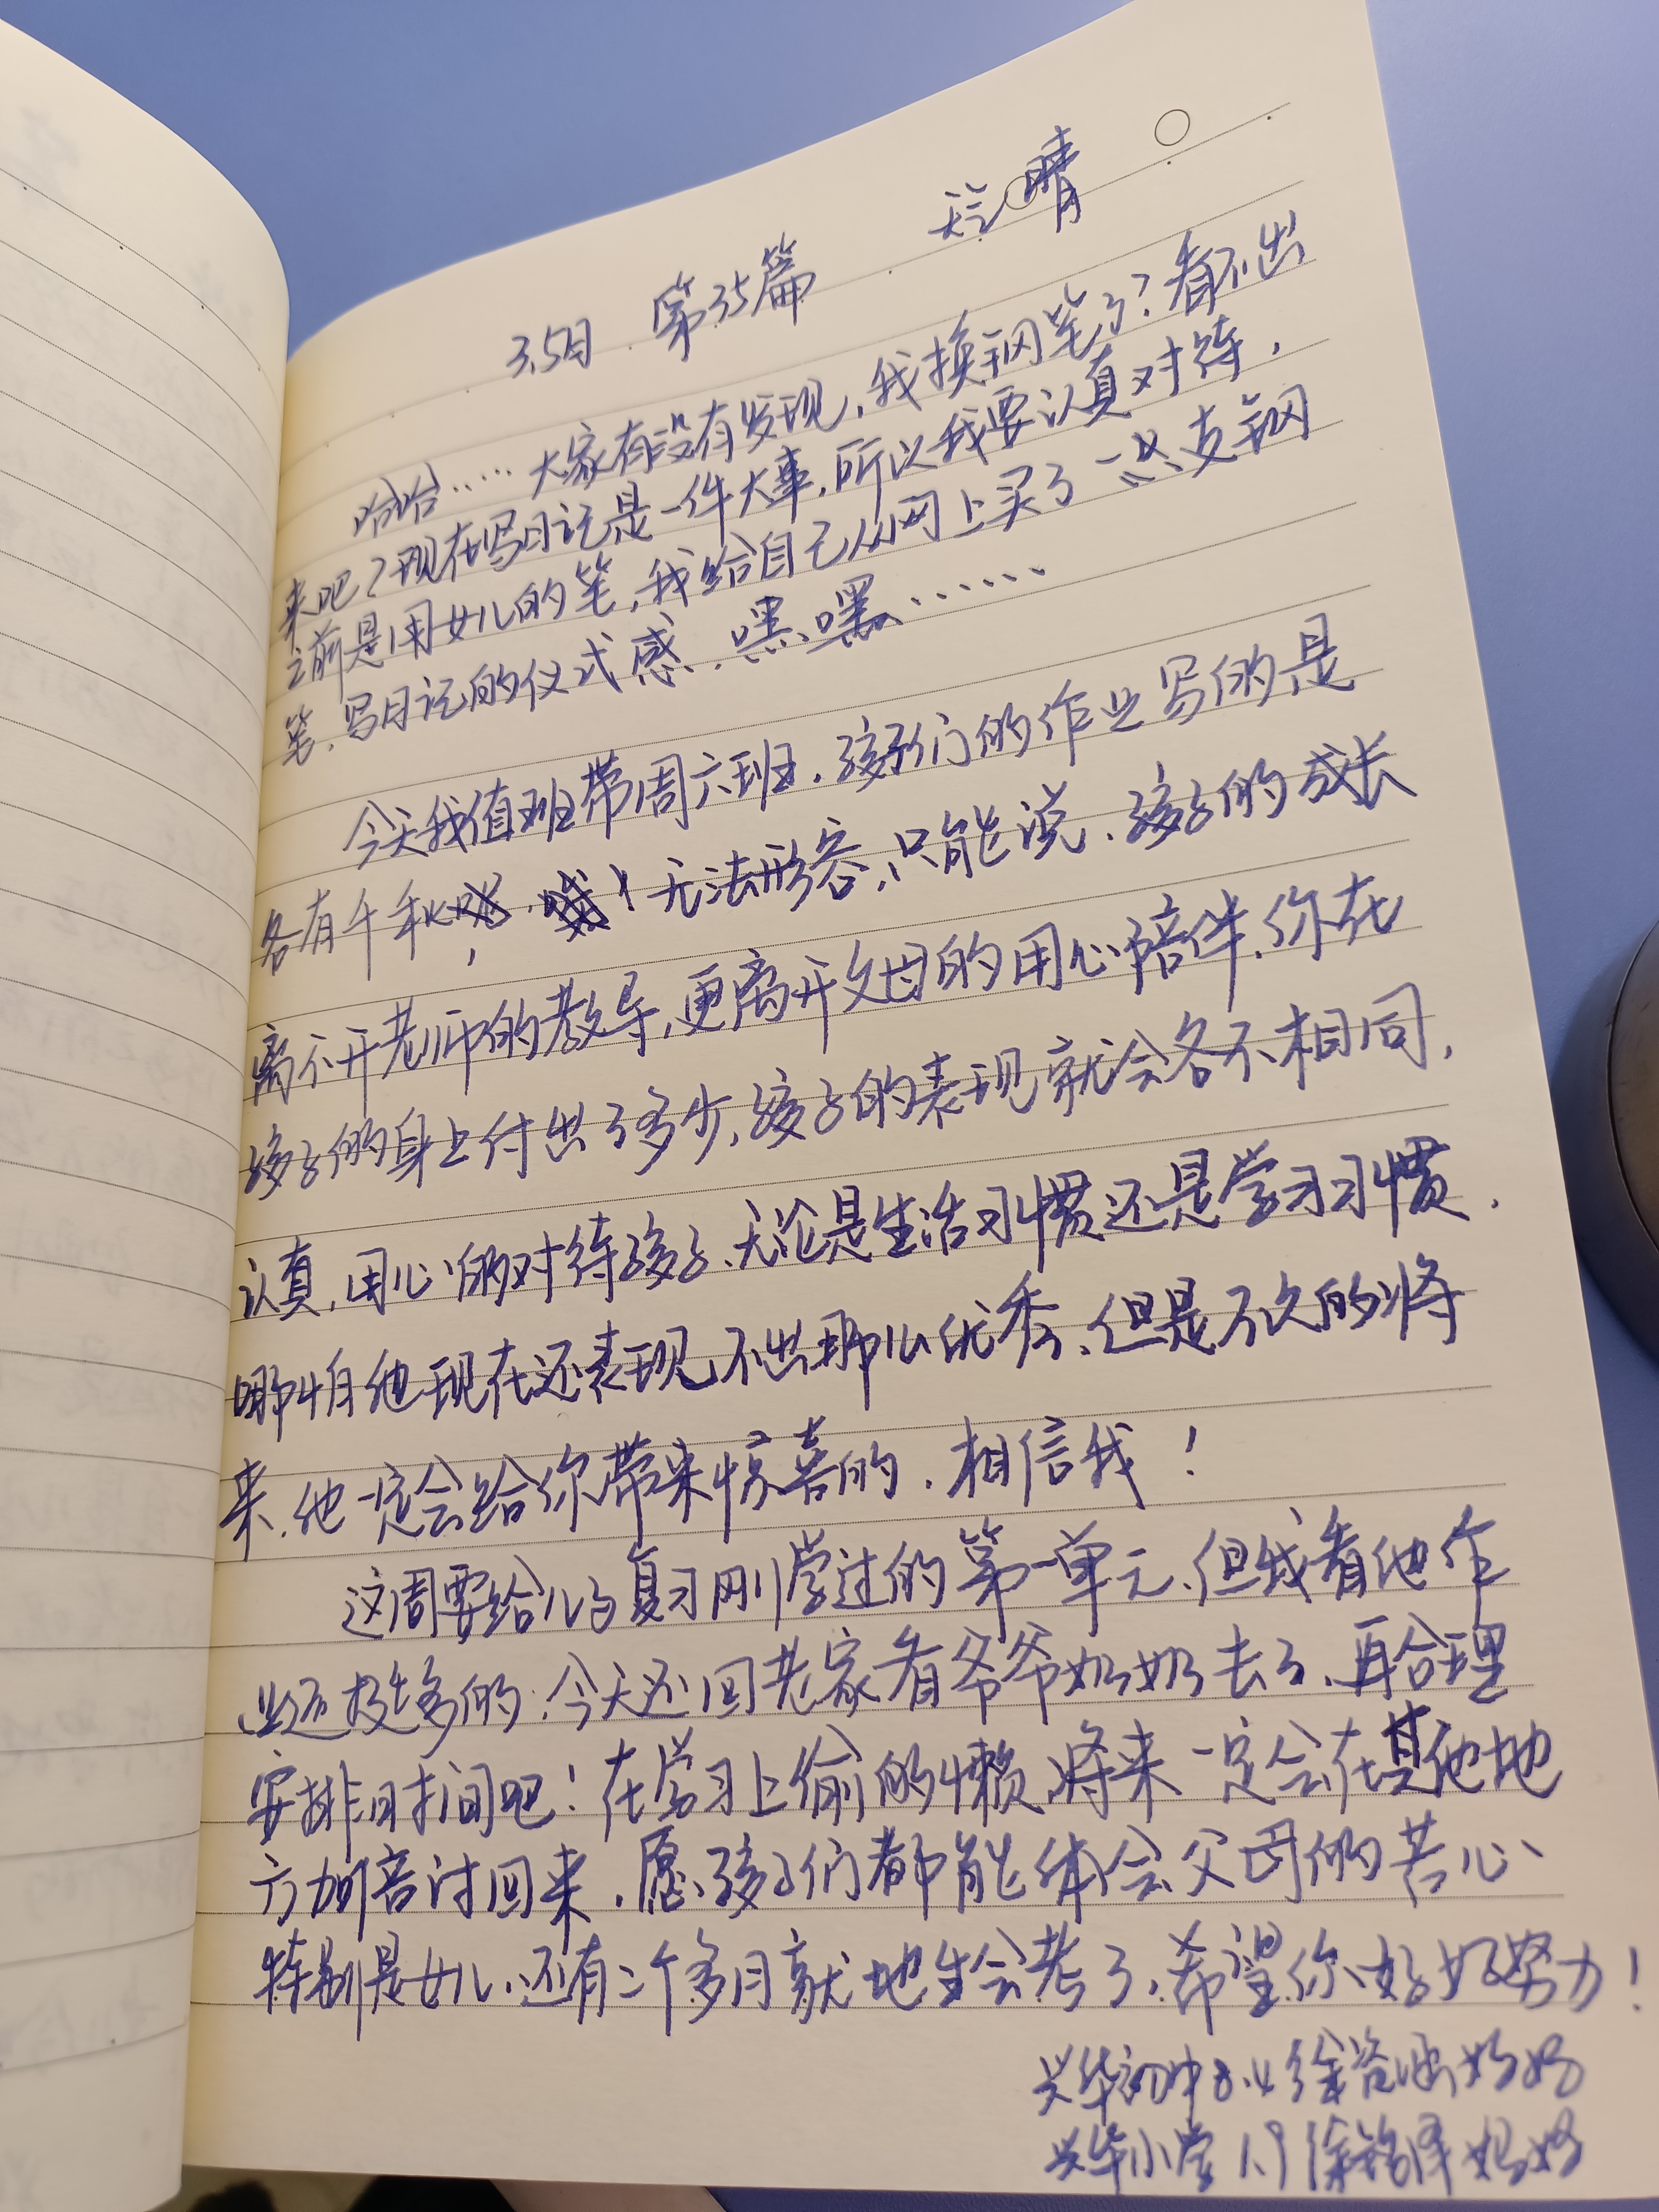 3.5日 第35篇 天气 晴
哈哈……大家有没有发现,我换钢笔了?看不出
来吧?现在写日记是一件大事,所以我要认真对待,
之前是用女儿的笔,我给自己从网上买了一支钢
笔,写日记的仪式感,嘿嘿……
今天我值班带周六班,孩子们的作业写的是
各有千秋,!无法形容,只能说,孩子的成长
离不开老师的教导,更离开父母的用心陪伴,你在
孩子的身上付出了多少,孩子的表现就会各不相同,
认真,用心的对待孩子,无论是生活习惯还是学习习惯,
哪怕他现在还表现不出那么优秀,但是不久的将
来,他一定会给你带来惊喜的,相信我!
这周要给儿子复习刚学过的第一单元,但我看他作
业还挺多的,今天还回老家看爷爷奶奶去了,再合理
安排时间吧!在学习上偷的懒,将来一定会在其他地
方加倍讨回来,愿孩子们都能体会父母的苦心
特别是女儿,还有二个多月就地生会考了,希望你好好努力!
兴华初中8.4徐 妈妈
兴华小学1.9徐铭泽妈妈